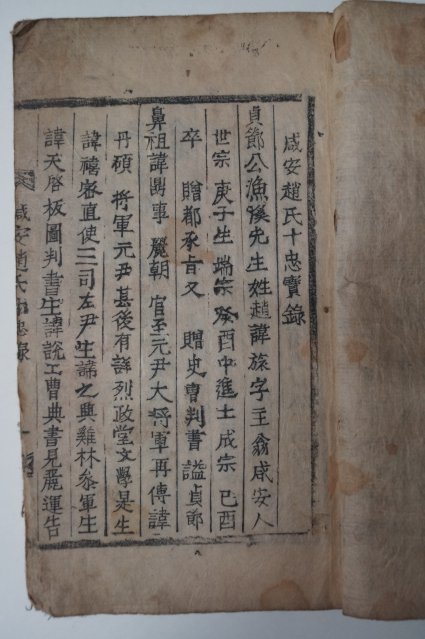 咸安趙氏十忠實錄
貞節公漁溪先生姓趙諱旅字主翁咸安人
世宗庚子生端宗癸酉中進士成宗己酉
卒贈都承旨又贈吏曹判書諡貞節
鼻祖諱鼎事麗朝官至元尹大將軍再傳諱
丹碩將軍元尹甚後有諱烈政堂文學是生
諱禧密直使三司左尹生諱之興雞林叅軍生
諱天啓板圖判書生諱悅工曹典書見麗運告
咸安趙氏十忠錄